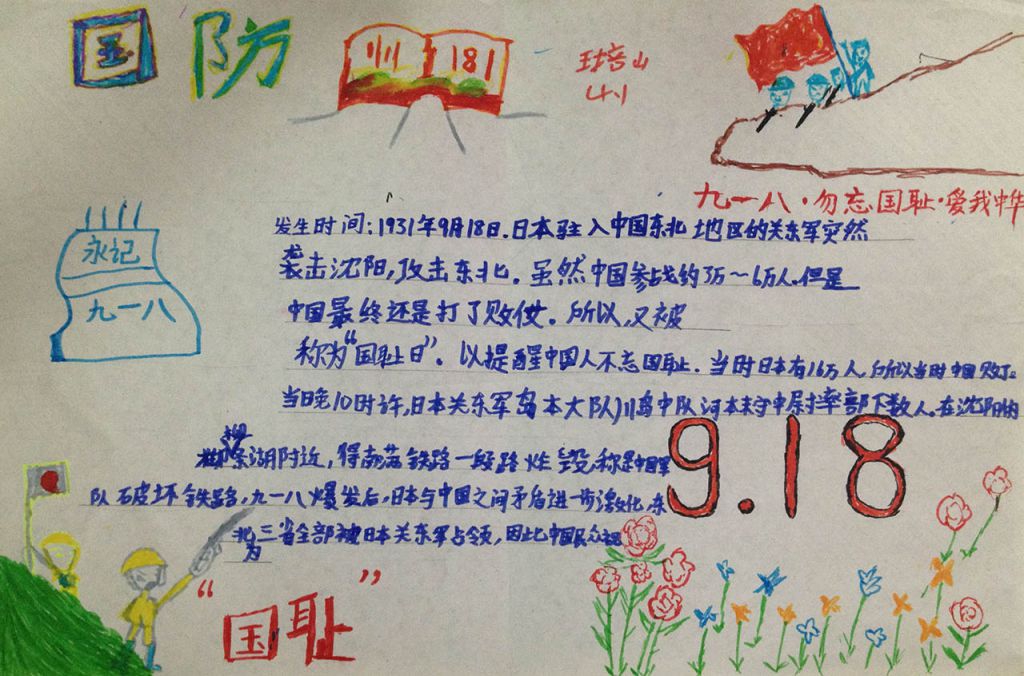 国防
181
九一八·勿忘国耻·爱我中华
永记
九一八
发生时间:1931年9月18日.日本驻入中国东北地区的关东军突然
袭击沈阳,攻击东北.虽然中国参战约3万~6万人.但是
中国最终还是打了败仗。所以,又被
称为“国耻日”.以提醒中国人不忘国耻.当时日本有1.6万人,所以当时中国败了。
当晚10时许,日本关东军岛本大队川岛中队河本末守中尉率部下数人.在沈阳的
柳条湖附近,将南满铁路一段路炸毁,称是中国军
队破坏铁路,九一八爆发后,日本与中国之间矛盾进一步激化,东
北三省全部被日本关东军占领,因此中国民众视
为
9.18
“国耻”